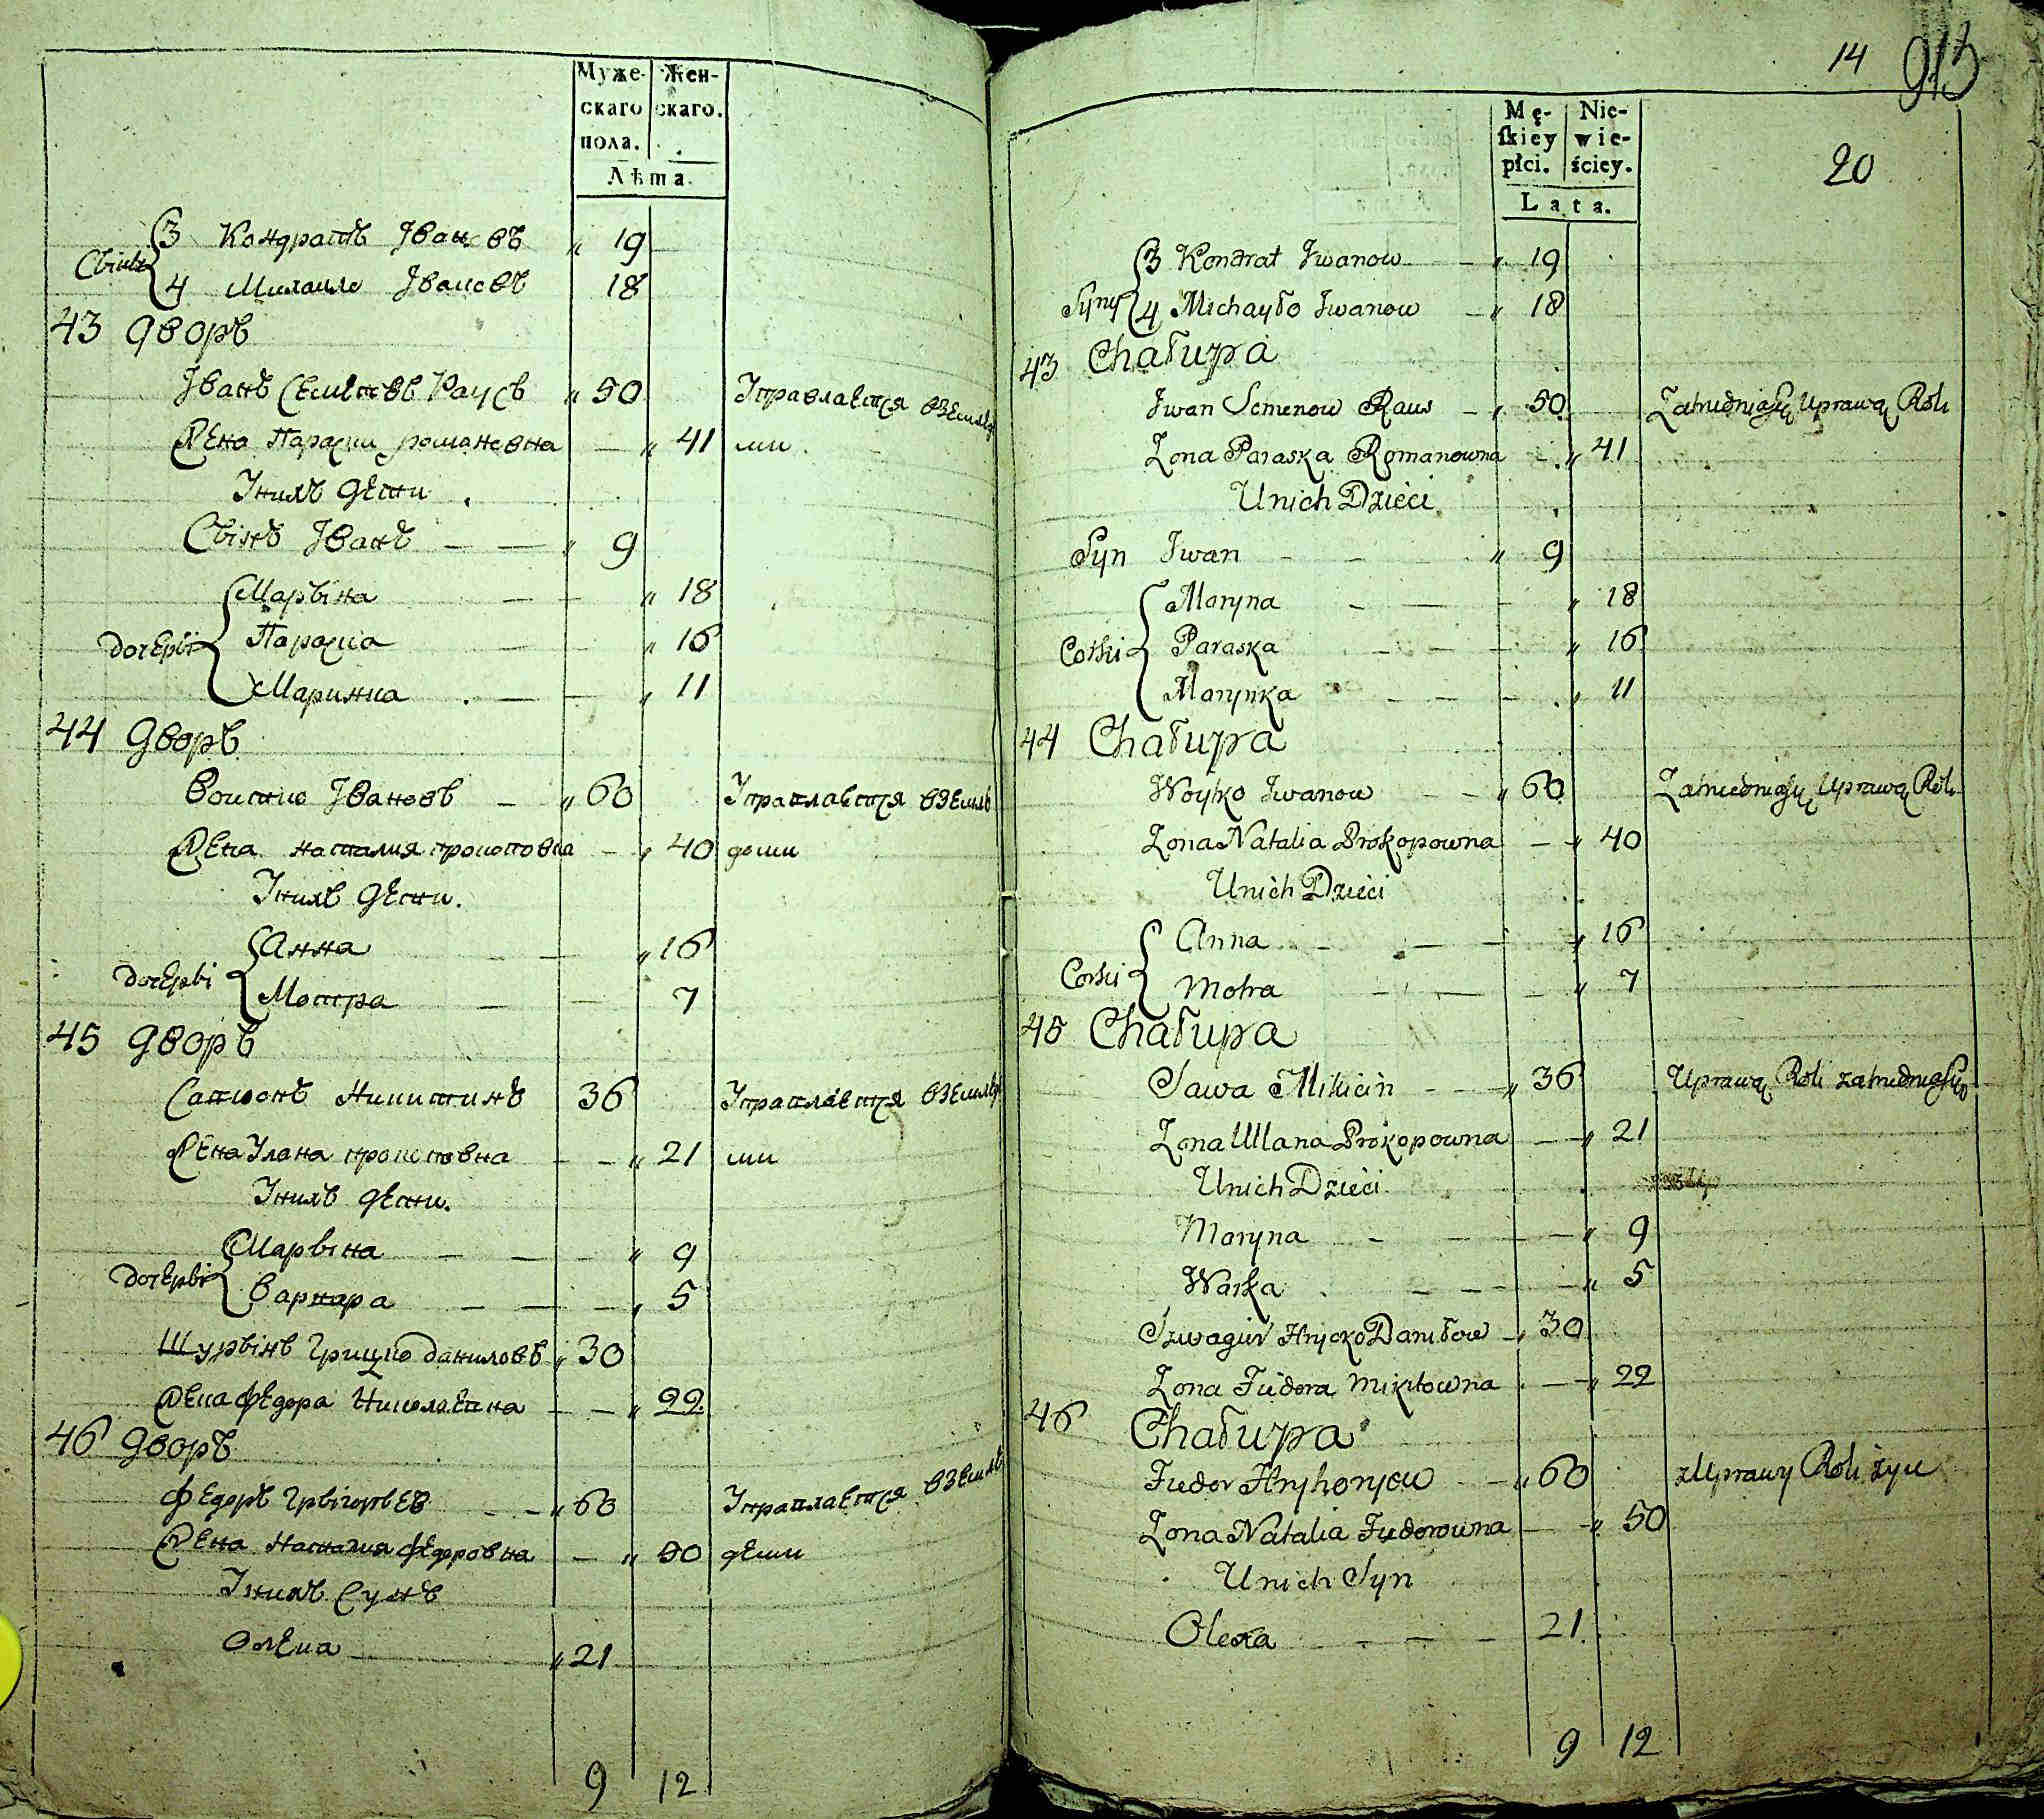 Муже- Жен-
скаго скаго.
пола.
Лѣта.
3 Кондратъ Ивановъ " 19
Сыны
4 Михаило Ивановъ 18
43 дворъ
Иванъ Семеновъ Раусъ " 50 Управляется вземлѣ
Жена Параски романовна — " 41 ми
Унихъ дети.
Сынъ Иванъ — — " 9
Марына — — " 18
дочеры Параска — — " 16
Маринка — — " 11
44 дворъ
Воитко Ивановъ — " 60 Управляется вземлѣ
Жена наталия прокоповна — " 40 деми
Унихъ дети.
Анна — — " 16
дочеры
Мотра — — 7
45 дворъ
Никитинъ 36 Управляется вземлѣ
Жена Улана прокоповна — — " 21 ми
Унихъ дети.
Марына — — — " 9
дочеры
Варвара — — — " 5
Шурынъ Грицко даниловъ " 30
Жена федора — — " 22
46 дворъ
федоръ Грыгорьевъ — — " 60 Управляется вземлѣ
Жена Наталия федоровна — " 50 деми
Унихъ Сынъ
Олекса " 21
9 12
14
913
Mę- Nie-
ſkiey wie-
płci. ściey.
Lata.
20
3 Kondrat Iwanow — " 19
Syny
4 Michayło Iwanow — " 18
43 Chałupa
Iwan Semenow Raus — " 50 Zatrudnia się Uprawą Roli
Zona Paraska Romanowna — " 41
Unich Dzieci
Syn Iwan — — " 9
Maryna — — — " 18
Corki Paraska — — — " 16
Marynka — — — " 11
44 Chałupa
Woytko Iwanow — — " 60 Zatrudnia się Uprawą Roli
Zona Natalia Prokopowna — " 40
Unich Dzieci
Anna — — — " 16
Corki
Motra — — — " 7
45 Chałupa
Sawa Mikicin — — " 36 Uprawą Roli zatrudnia się
Zona Ulana Prokopowna — " 21
Unich Dzieci
Maryna — — — " 9
Warka — — — " 5
Szwagier Hrycko Daniłow — " 30
Zona Fiedora Mikitowna — " 22
46 Chałupa
Fiedor Hryhoryew — " 60 z Uprawy Roli żyie
Zona Natalia Fiedorowna — " 50
Unich Syn
Olexa — — — 21
9 12